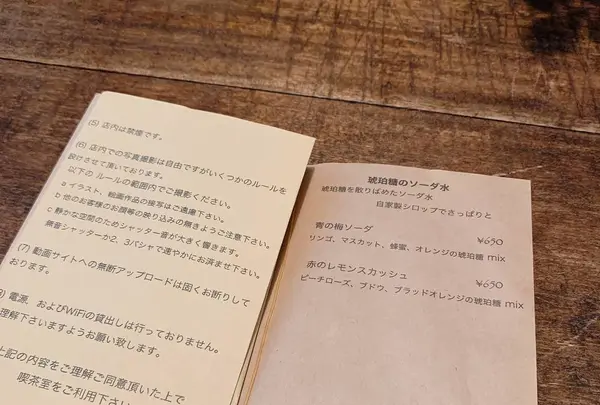 (5) 店内は禁煙です。
(6) 店内での写真撮影は自由ですがいくつかのルールを
設けさせて頂いております。
以下の ルールの範囲内でご撮影ください。
a イラスト、絵画作品の接写はご遠慮下さい。
b 他のお客様のお顔等の映り込みの無きようご注意下さい。
c 静かな空間のためシャッター音が大きく響きます。
無音シャッターか2、3パシャで速やかにお済ませ下さい。
(7) 動画サイトへの無断アップロードは固くお断りして
おります。
) 電源、およびWiFiの貸出しは行っておりません。
理解下さいますようお願い致します。
上記の内容をご理解ご同意頂いた上で
喫茶室をご利用下さい
琥珀糖のソーダ水
琥珀糖を取りばめたソーダ水
自家製シロップでさっぱりと
青の梅ソーダ
¥650
リンゴ、マスカット、蜂蜜、オレンジの琥珀糖 mix
赤のレモンスカッシュ
¥650
ピーチローズ、ブドウ、ブラッドオレンジの琥珀糖 mix